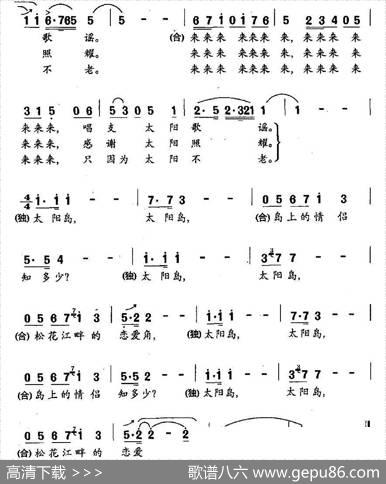 1 1 6·765 5 | 5 - - | 6 7 1 0 1 7 6 | 5 2 3 4 0 5 |
歌 谣。 (合) 来来来 来来来 来 来来来 来
照 耀。 来来来 来来来 来 来来来 来
不 老。 来来来 来来来 来 来来来 来
3 1 5 0 6 | 5 3 0 5 1 | 2·5 2·321 1 | 1 - - |
来来来, 唱 支 太 阳 歌 谣。
来来来, 感 谢 太 阳 照 耀。
来来来, 只 因 为 太 阳 不 老。
4/4 1·1 1 1 - - | 7·7 7 3 - - | 0 5 6 7 1 3 |
(独) 太 阳 岛, 太 阳 岛, (合) 岛上的情 侣
5·5 4 - - | 1·1 1 1 - - | 3 7 7 - - |
知多少? (独) 太 阳 岛, 太 阳 岛,
0 5 6 7 1 3 | 5·2 2 - - | 1·1 1 1 - - | 7·7 3 - - |
(合) 松花江畔 的 恋爱角, (独) 太阳岛, 太阳岛,
0 5 6 7 1 3 | 5·5 2 - - | 1·1 1 1 - - | 3 7 7 - - |
(合) 岛上的情 侣 知多少? (独) 太阳岛, 太阳岛,
0 5 6 7 1 3 | 5·2 2 - 2
(合) 松花江畔 的 恋爱
高清下载 >>> 歌谱八六 www.gepu86.com